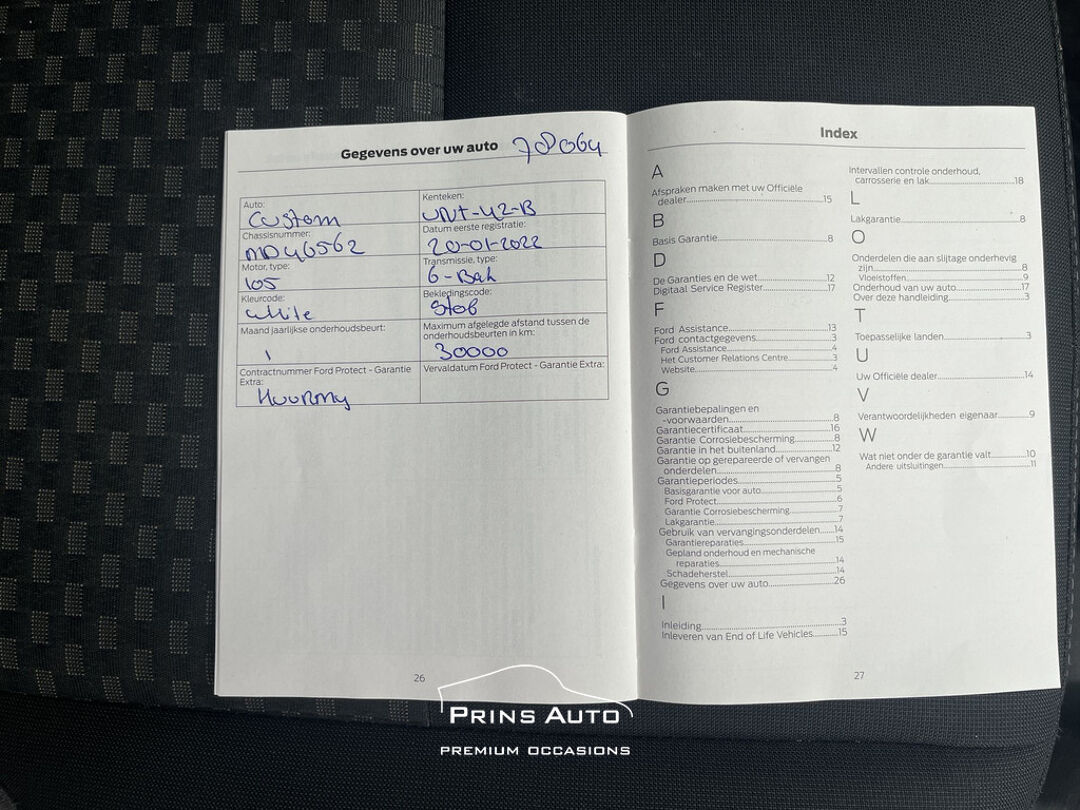 Gegevens over uw auto 78064
Auto:
Custom
Kenteken:
VNT-42-B
Chassisnummer:
MD46562
Datum eerste registratie:
20-01-2022
Motor, type:
105
Transmissie, type:
6-Bak
Kleurcode:
White
Bekledingscode:
Stof
Maand jaarlijkse onderhoudsbeurt:
1
Maximum afgelegde afstand tussen de
onderhoudsbeurten in km:
30000
Contractnummer Ford Protect - Garantie
Extra:
Vervaldatum Ford Protect - Garantie Extra:
26
Index
A
Afspraken maken met uw Officiële
dealer 15
B
Basis Garantie 8
D
De Garanties en de wet 12
Digitaal Service Register 17
F
Ford Assistance 13
Ford contactgegevens 3
Ford Assistance 4
Het Customer Relations Centre 3
Website 4
G
Garantiebepalingen en
-voorwaarden 8
Garantiecertificaat 16
Garantie Corrosiebescherming 8
Garantie in het buitenland 12
Garantie op gerepareerde of vervangen
onderdelen 8
Garantieperiodes 5
Basisgarantie voor auto 5
Ford Protect 6
Garantie Corrosiebescherming 7
Lakgarantie 7
Gebruik van vervangingsonderdelen 14
Garantiereparaties 15
Gepland onderhoud en mechanische
reparaties 14
Schadeherstel 14
Gegevens over uw auto 26
I
Inleiding 3
Inleveren van End of Life Vehicles 15
Intervallen controle onderhoud,
carrosserie en lak 18
L
Lakgarantie 8
O
Onderdelen die aan slijtage onderhevig
zijn 8
Vloeistoffen 9
Onderhoud van uw auto 17
Over deze handleiding 3
T
Toepasselijke landen 3
U
Uw Officiële dealer 14
V
Verantwoordelijkheden eigenaar 9
W
Wat niet onder de garantie valt 10
Andere uitsluitingen 11
27
PRINS AUTO
PREMIUM OCCASIONS